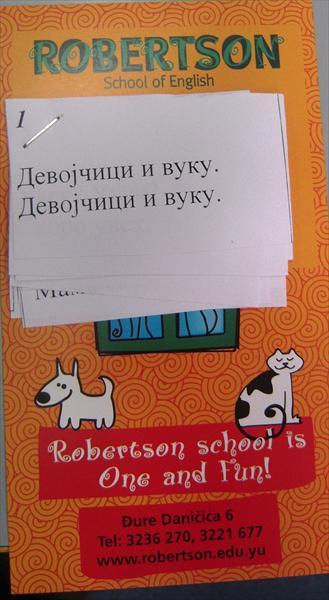 ROBERTSON
School of English
1
Девојчици и вуку.
Девојчици и вуку.
Robertson school is
One and Fun!
Đure Daničića 6
Tel: 3236 270, 3221 677
www.robertson.edu.yu